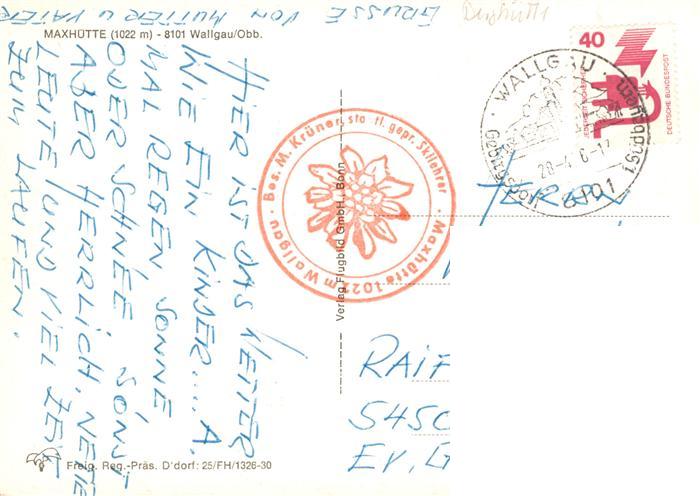 GRÜSSE VON MUTTER U VATER
MAXHÜTTE (1022 m) - 8101 Wallgau/Obb.
HIER IST DAS WETTER
WIE EIN KINDER.... A.
MAL REGEN, SONNE,
ODER SCHNEE, SONST
ABER HERRLICH, NETTE
LEUTE UND VIEL ZEIT
ZUM LAUFEN.
Freig. Reg.-Präs. D'dorf: 25/FH/1326-30
Verlag Flugbild GmbH., Bonn
Bes. M. Krüner, sta tl. gepr. Skilehrer
Maxhütte 1022 m Wallgau
WALLGAU
8101
40
JEDERZEIT SICHERHEIT
DEUTSCHE BUNDESPOST
HERRN
RAIF
545
EV. G